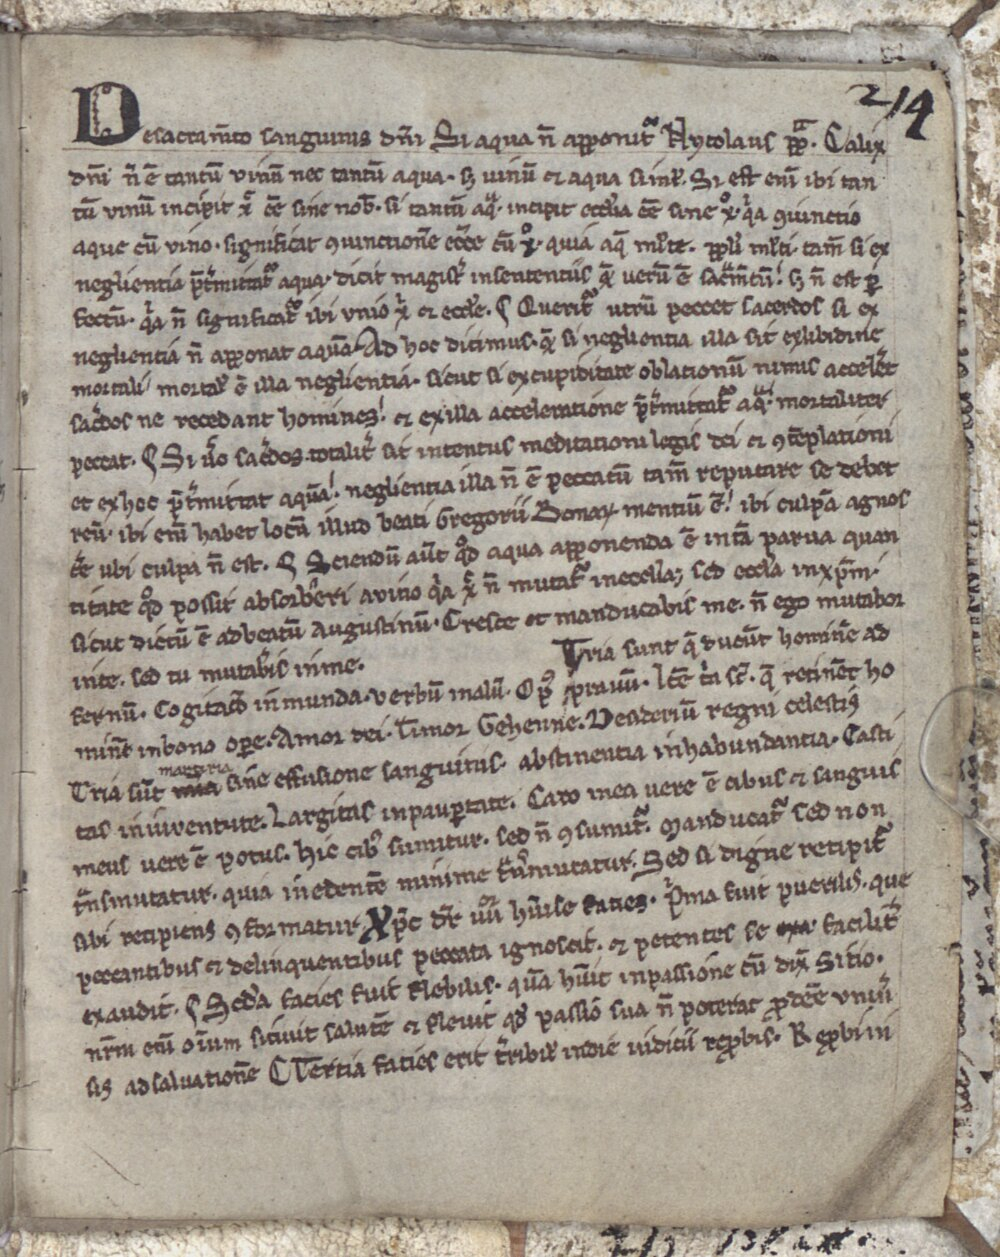 214
De sacram̄to sanguinis dn̄i Si aqua n̄ apponit᷑ Nycolaus pp̄. Calix
dn̄i n̄ ē tantū vinū nec tantū aqua. s; uinū et aqua simł. Si est enī ibi tan
tū vinū incipit x̄ ēē sine nob̄. si tantū aq̄. incipit ecclīa ēē sine x̄. q̄a ꝯiunctio
aque cū vino. significat ꝯiunctionē ecc̄e cū x̄. quia aq̄ mlt̄e. ppłi mlt̄i. tam̄ si ex
neglientia p̄t̄mittat᷑ aqua. dicit magist᷑ in sententiis q̄ verū ē sac̄m̄tū. s; n̄ est per
fectū. q̄a n̄ significat᷑ ibi vnio x̄i et eccłe. ¶ Querit᷑ utrū peccet sacerdos si ex
neglientia n̄ apponat aquā. Ad hoc dicimus. q̄ si neglientia illa sit ex libidine
mortali mortał ē illa neglientia. sicut si ex cupiditate oblationū nimis acceleret
sac̄dos ne recedant homines. et ex illa acceleratione p̄t̄mittat᷑ aq̄. mortaliter
peccat. ¶ Si v̄o sac̄dos totalit᷑ sit intentus meditationi legis dei et ꝯtēplationi
et ex hoc p̄t̄mittat aquā. neglientia illa n̄ ē peccatū tam̄ reputare se debet
reū. ibi enī habet locū illud beati Gregorii Bonaꝝ mentiū ē. ibi culpā agnos
c̄e ubi culpa n̄ est. ¶ Sciendū aūt qd̄ aqua apponenda ē in tā parua quan
titate qd̄ possit absorb̄eri a vino q̄a x̄ n̄ mutat᷑ in eccłia; sed eccłia in xp̄m.
sicut dictū ē ad beatū Augustinū. Cresce et manducabis me. n̄ ego mutabor
in te. sed tu mutab̄is in me. Tria sunt q̄ ducūt hominē ad
fernū. Cogitac̄o in munda. verbū malū. Op᷒ pravū. Itē t̄a st̄. q̄ retinēt ho
minē in bono ope. Amor dei. Timor Gehenne. Desideriū regni celestis
Tria sūt martiria sine effusione sanguinis. abstinentia in habundantia. Casti
tas in iuventute. Largitas in paupertate. Caro mea vere ē cibus et sanguis
meus vere ē potus. Hic cib᷒ sumitur. sed n̄ ꝯsumit᷑. Manducat᷑ sed non
t̄nsmutatur. quia in edentē minime t̄nsmutatur. Sed si digne recipit᷑
sibi recipiens ꝯformatur. Xp̄c dr̄ h̄uisse facies. P̄ma fuit puerilis. que
peccantibus et delinquentibus peccata ignoscit. et petentes se facilit᷑
exaudit. ¶ Sed̄a facies fuit flebilis. quā h̄uit in passione cū dix̄ Sitio.
nr̄m enī oīum sitivit salutē et flevit qd̄ passio sua n̄ poterat p̄dēē vniū
sis ad salvationē ¶ Tertia facies erit t̄ribił in die iudicii rep̄bis. Rep̄bi ni